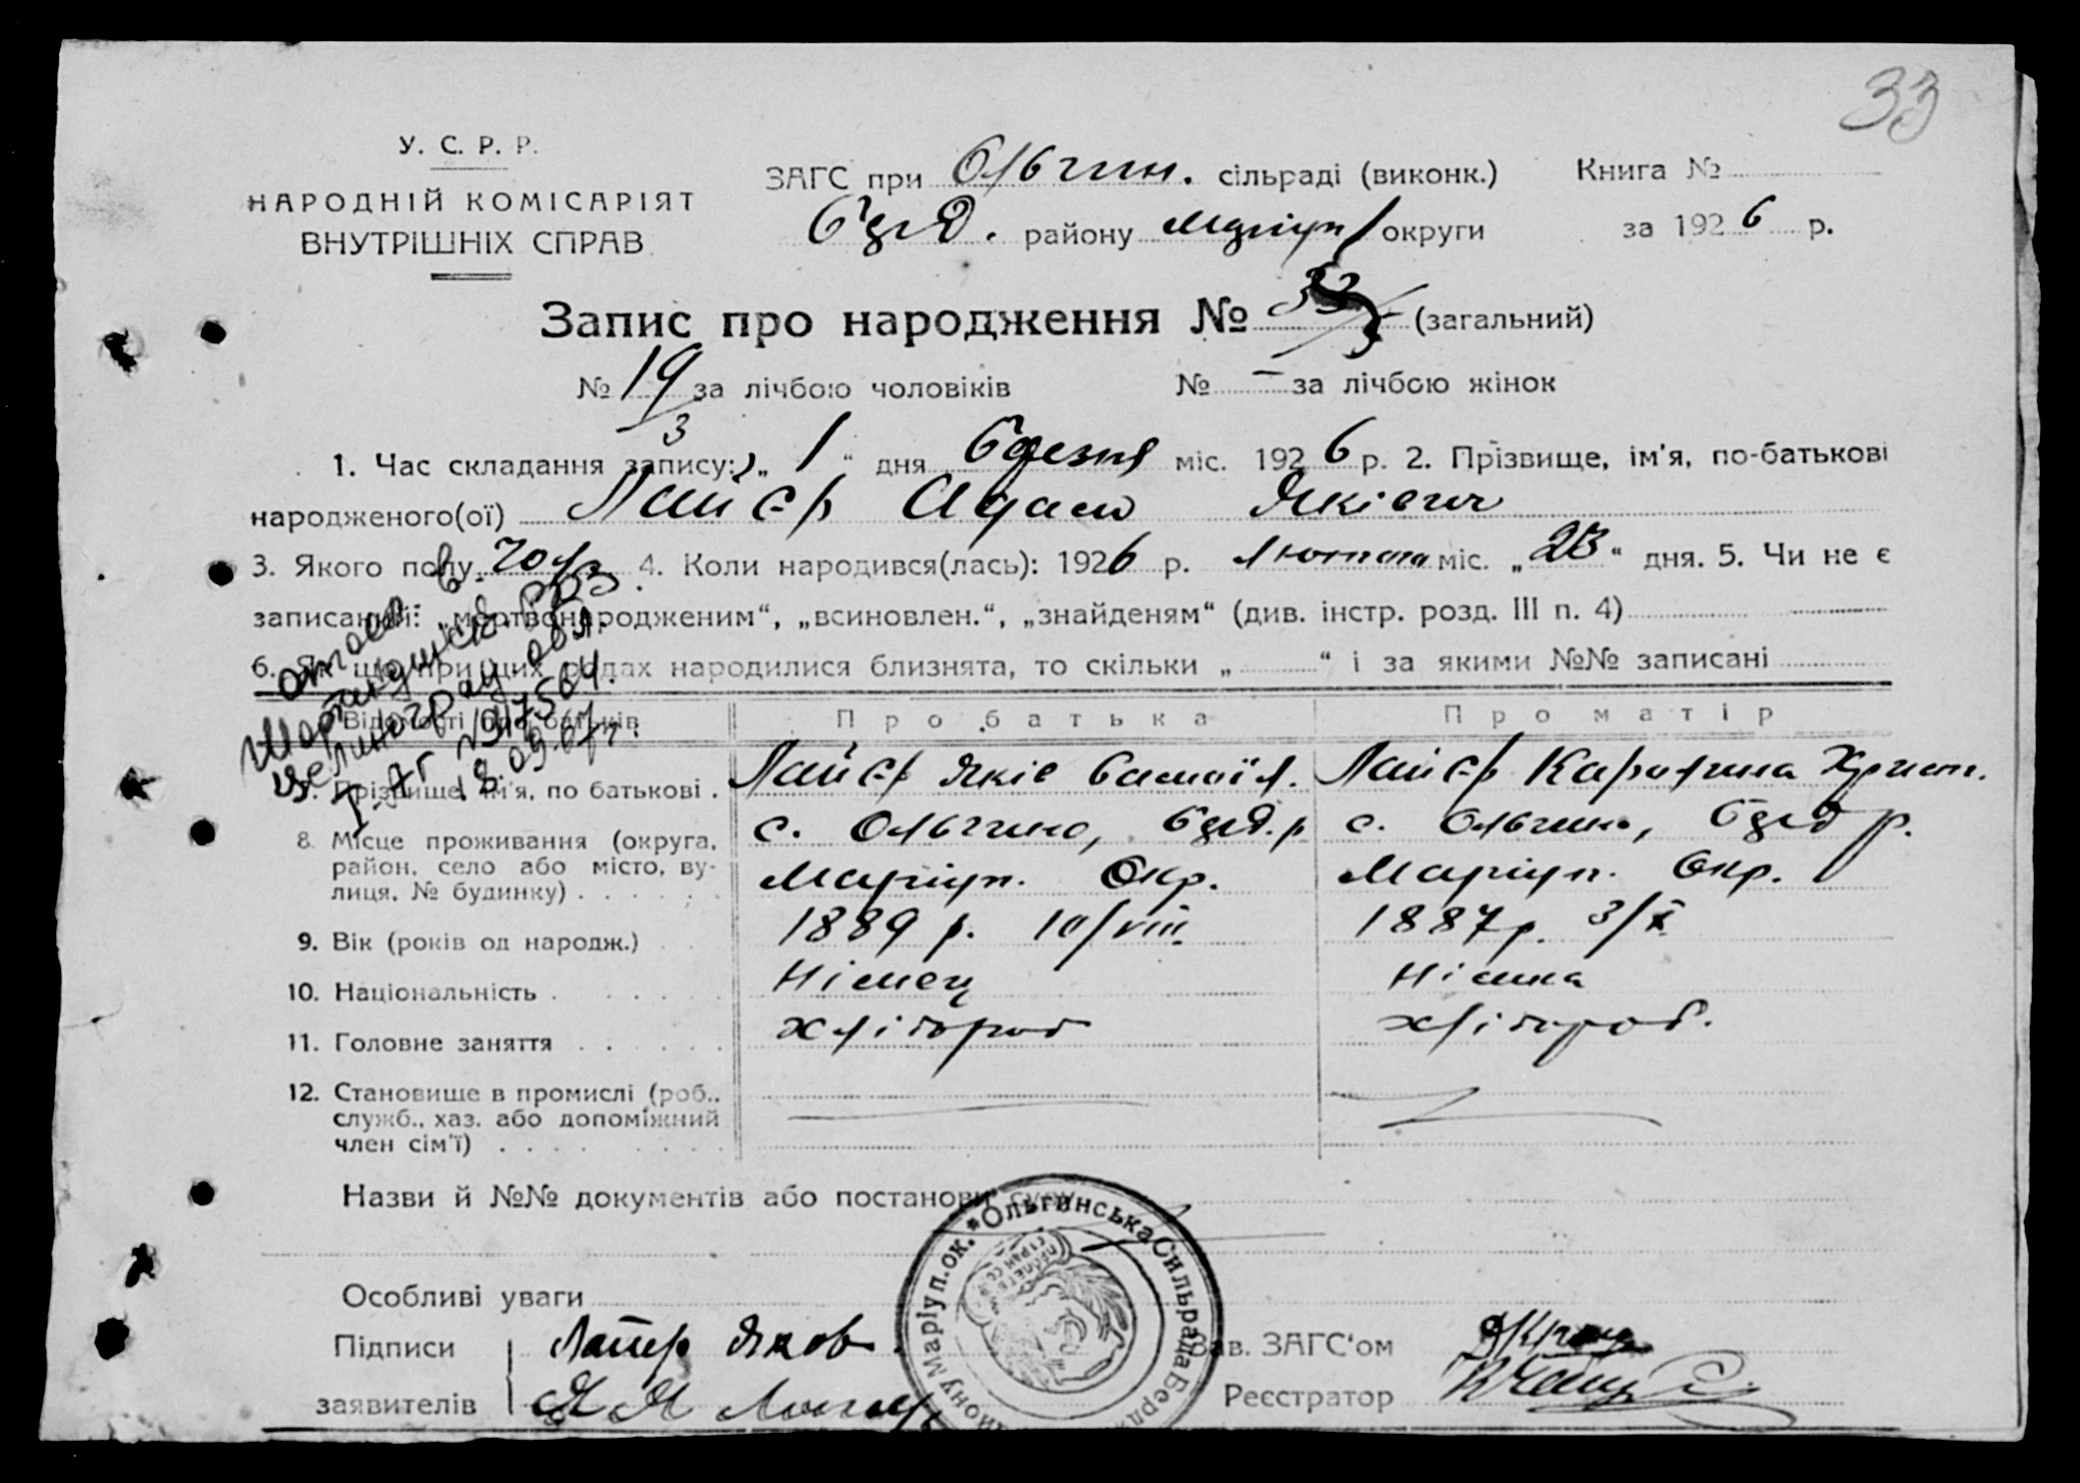 33
У. С. Р. Р.
НАРОДНІЙ КОМІСАРІЯТ
ВНУТРІШНІХ СПРАВ
ЗАГС при Ольгин. сільраді (виконк.) Книга №
Бэрд. району Маріуп округи за 1926 р.
Запис про народження № 33/3 (загальний)
№ 19/3 за лічбою чоловіків № – за лічбою жінок
1. Час складання запису: „1“ дня березня міс. 1926 р. 2. Прізвище, ім'я, по-батькові
народженого(ої) Лайєр Адам Яківич
3. Якого полу чол. 4. Коли народився(лась): 1926 р. лютого міс. „23“ дня. 5. Чи не є
записаний: „мертвонародженим“, „всиновлен.“, „знайденям“ (див. інстр. розд. III п. 4)
6. Як що при цих родах народилися близнята, то скільки „ “ і за якими №№ записані
в
Шортандинск. РБЗ
Целиноград. обл.
I-АГ № 197564.
18.09.67г.
Відомості про батьків Про батька Про матір
7. Прізвище, ім'я, по батькові . Лайєр Яків Самойл. Лайєр Каролина Христ.
8. Місце проживання (округа, район, село або місто, вулиця, № будинку) с. Ольгино, Бэрд. р. с. Ольгино, Бэрд р.
Маріуп. Окр. Маріуп. Окр.
9. Вік (років од народж.) 1889 р. 10/VIII. 1887 р. 3/X
10. Національність . Німец Німка
11. Головне заняття . Хлібороб хлібороб.
12. Становище в промислі (роб.,
служб., хаз. або допоміжний
член сім'ї)
Назви й №№ документів або постанови
Особливі уваги
Підписи Лайер Яков Зав. ЗАГС'ом
заявителів Я Я Реєстратор
Маріуп.ок. * Ольгинська Сильрада Берд